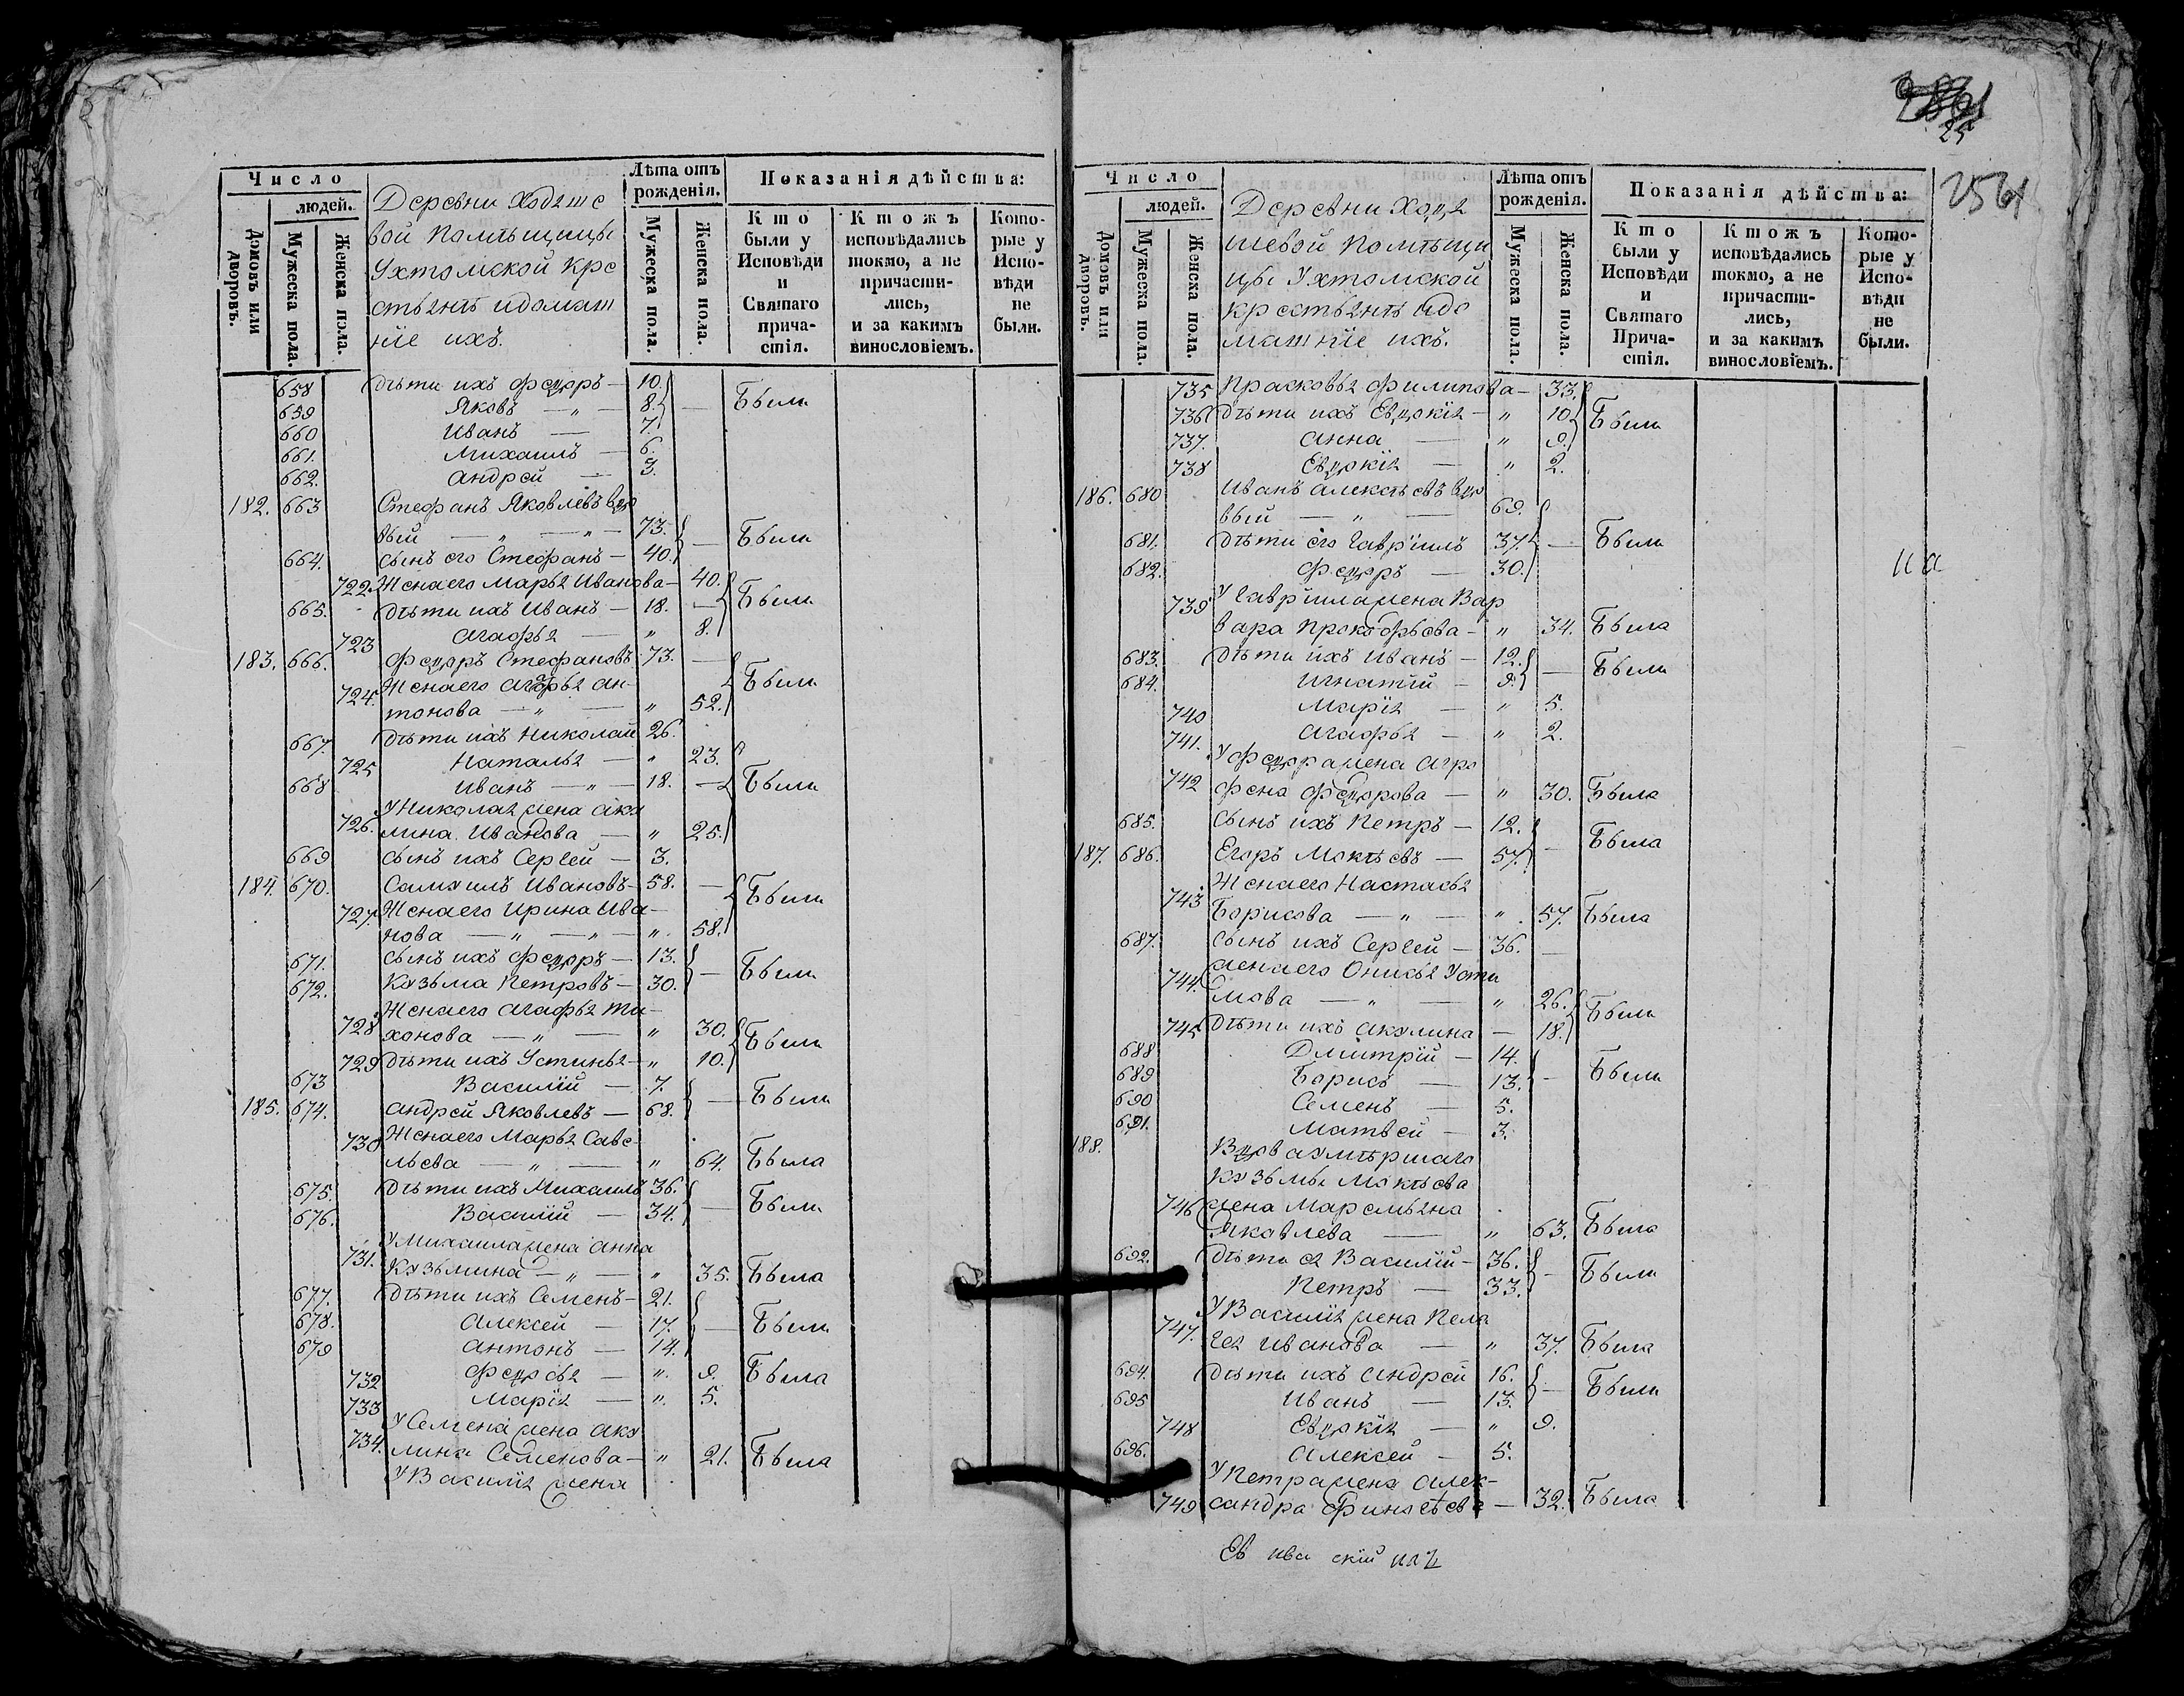 Число
людей.
Домовъ или дворовъ.
Мужеска пола.
Женска пола.
Деревни Ходяше
вой Помѣщицы
Ухтомской Кре
стьянѣ идомаш
ніе ихъ.
Лѣта отъ
рожденія.
Мужеска пола.
Женска пола.
Показанія дѣйства:
Кто
были у
Исповѣди
и
Святаго
прича-
стія.
Ктожъ
исповѣдались
токмо, а не
причасти-
лись,
и за какимъ
винословіемъ.
Кото-
рые у
Испо-
вѣди
не
были.
658 дѣти ихъ Федоръ — 10. Были
659 Яковъ — „ — 8. —
660 Иванъ — 7.
661. Михаилъ — 6.
662. Андрей — 3.
182. 663 Стефанъ Яковлевъ вдо
вый — „ — „ — 73. Были
664. сынъ его Стефанъ — 40. —
722. Жена его Марья Иванова — 40. Были
665. дѣти ихъ Иванъ — 18. —
723 Агафья — „ 8.
183. 666. Федоръ Стефановъ 73. — Были
724. Жена его Агафья Ан-
тонова — „ — „ 52.
667. дѣти ихъ Николай 26.
725 Наталья — „ 23.
668 Иванъ — „ — 18. — Были
У Николая жена Аку
726. лина Иванова — „ 25.
669 сынъ ихъ Сергей — 3.
184. 670. Самуилъ Ивановъ — 58. — Были
727. Жена его Ирина Ива-
нова — „ — „ — „ 58.
671. сынъ ихъ Федоръ — 13. Были
672. Кузьма Петровъ — 30. —
Жена его Агафья Ти-
728 хонова — „ — „ 30. Были
729 дѣти ихъ Устинья — „ 10.
673 Василій — 7. Были
185. 674. Андрей Яковлевъ — 68. —
730 Жена его Марья Саве-
льева — „ — „ 64. Была
675. дѣти ихъ Михаилъ 36. Были
676. Василій — 34. —
У Михаила жена Анна
731. Кузьмина — „ — „ 35. Была
677. дѣти ихъ Семенъ — 21.
678. Алексей — 17. — Были
679 Антонъ — 14.
732 Федосья — „ 9. Была
733 Марія — „ 5.
У Семена жена Аку
734. лина Семенова — „ 21. Была
У Василія жена
25
256
Число
людей.
Домовъ или дворовъ.
Мужеска пола.
Женска пола.
Деревни Ходя
шевой Помѣщи
цы Ухтомской
крестьянѣ идо
машніе ихъ.
Лѣта отъ
рожденія.
Мужеска пола.
Женска пола.
Показанія дѣйства:
Кто
были у
Исповѣди
и
Святаго
Прича-
стія.
Ктожъ
исповѣдались
токмо, а не
причасти-
лись,
и за какимъ
винословіемъ.
Кото-
рые у
Испо-
вѣди
не
были.
735 Прасковья Филипова — 33.
736 дѣти ихъ Евдокія — „ 10. Были
737. Анна — „ 9.
738 Евдокія — „ 2.
186. 680 Иванъ Алексѣевъ вдо
вый — „ — 69.
681. дѣти его Гавріилъ 37. — Были
682. Федоръ — 30.
739 У Гавріила жена Вар
вара Прокофьева — „ 34. Была
683. дѣти ихъ Иванъ — 12. Были
684. Игнатій — 9. —
740 Марія — „ 5.
741. Агафья — „ 2.
У Федора жена Агра
742 фена Федорова — „ 30. Была
685. Сынъ ихъ Петръ — 12. Была
187. 686. Егоръ Мокѣевъ — 57. —
Жена его Настасья
743 Борисова — „ — „ 57. Была
687. сынъ ихъ Сергей — 36. —
744. жена его Онисья Усти
мова — „ — „ 26. Были
745 дѣти ихъ Акулина — 18.
688 Дмитрій — 14.
689 Борисъ — 13. — Были
690 Семенъ — 5.
691. Матвей — 3.
188. Вдова умѣршаго
Кузьмы Мокѣева
746 жена Маремьяна
Яковлева — „ 63. Была
692. дѣти ея Василій — 36. Были
Петръ — 33. —
У Василія жена Пела
747. гея Иванова — „ 37. Была
694. дѣти ихъ Андрей 16. Были
695 Иванъ — 13. —
748 Евдокія — „ 9.
696. Алексей — 5.
У Петра жена Алек-
749 сандра Финогѣева — 32. Была